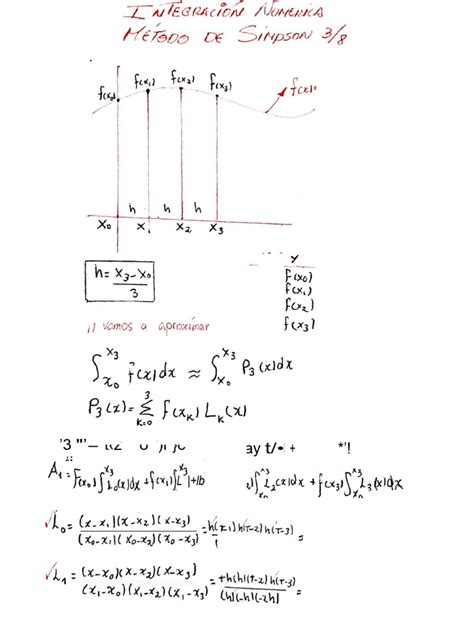 INTEGRACIÓN NUMERICA
MÉTODO DE SIMPSON 3/8
f(x₀) f(x₁) f(x₂) f(x₃) f(x)=
h h h
x₀ x₁ x₂ x₃
h = (x₃-x₀)/3
y
f(x₀)
f(x₁)
f(x₂)
f(x₃)
¡¡ vamos a aproximar
∫_{x₀}^{x₃} f(x)dx ≈ ∫_{x₀}^{x₃} P₃(x)dx
P₃(x) = Σ_{k=0}^{3} f(x_k) L_k(x)
A₁ = f(x₀)∫^{x₃} L₀(x)dx + f(x₁)∫ L₂(x)dx + f(x₃)∫_{x₀}^{x₃} L₃(x)dx
L₀ = (x-x₁)(x-x₂)(x-x₃)/(x₀-x₁)(x₀-x₂)(x₀-x₃) =
L₁ = (x-x₀)(x-x₂)(x-x₃)/(x₁-x₀)(x₁-x₂)(x₁-x₃) = th(h)(t-2)h(t-3)/(h)(-h)(-2h) =